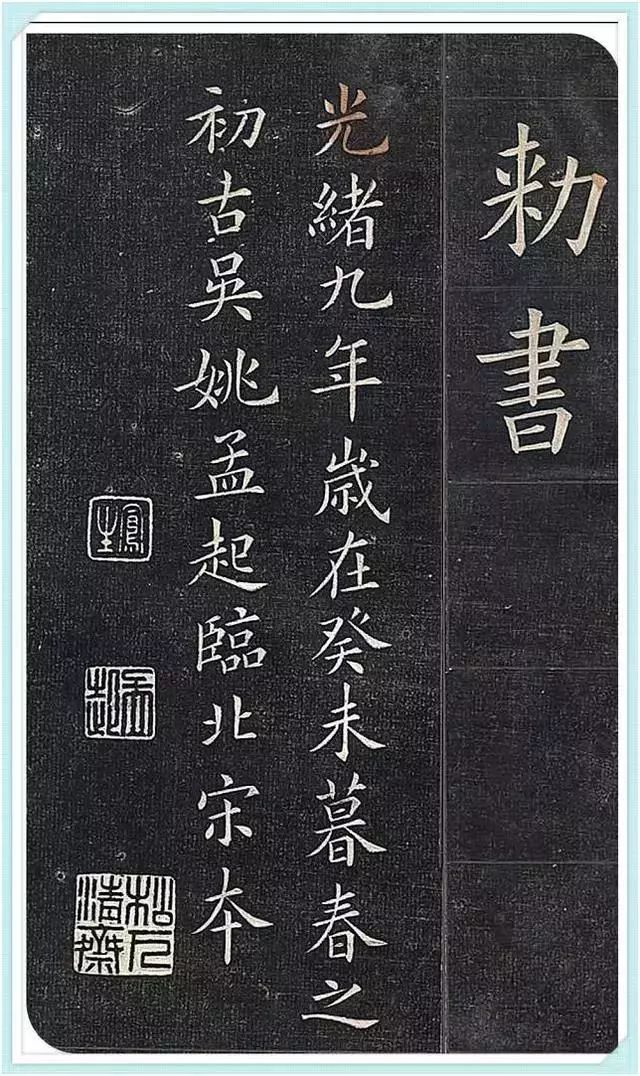 勑書
光緒九年歲在癸未暮春之
初古吳姚孟起臨北宋本
鳳生
孟起
松下清齋